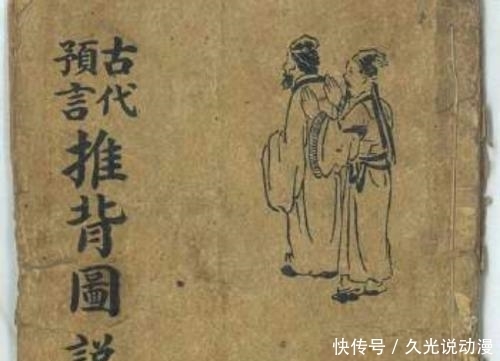 古代
預言
推背圖說
快传号／久光说动漫